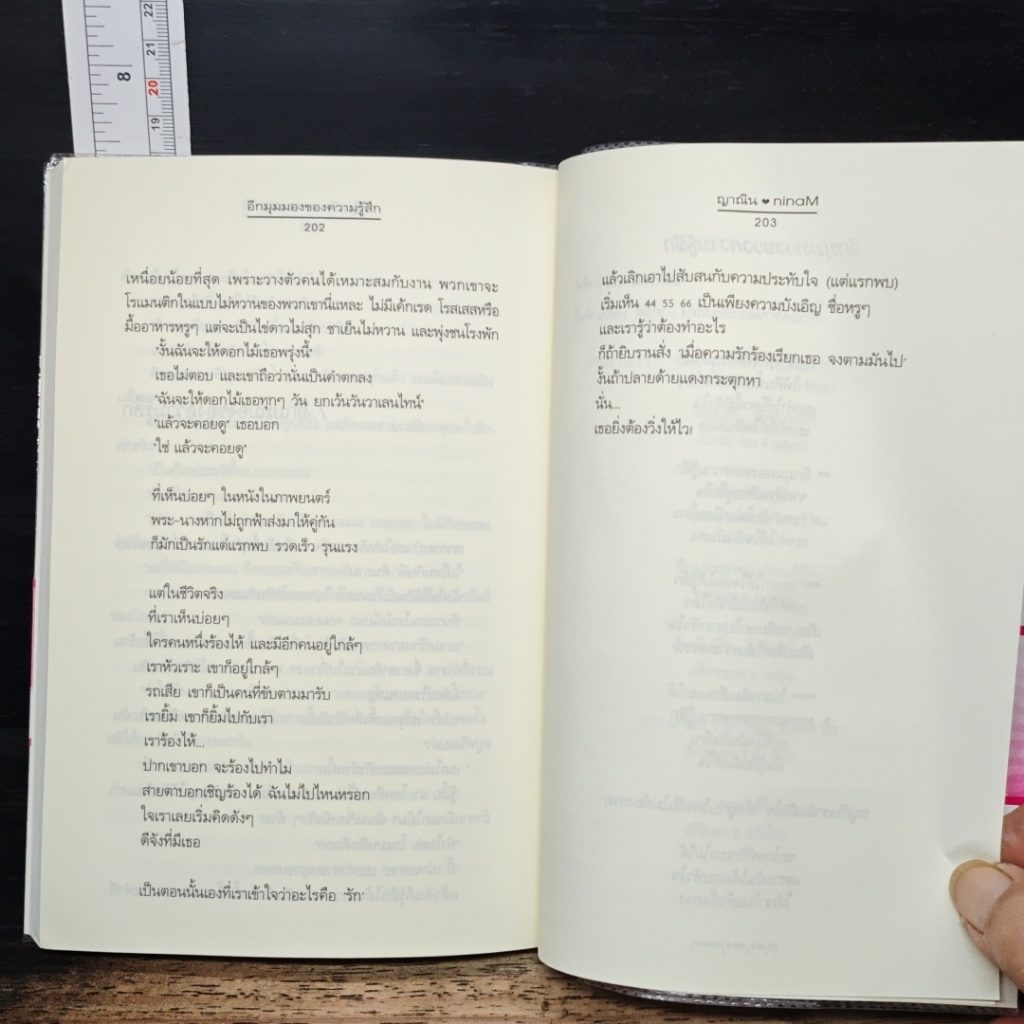 22
21
8
20
19
อีกมุมมองของความรู้สึก
202
เหนื่อยน้อยที่สุด เพราะวางตัวคนได้เหมาะสมกับงาน พวกเขาจะ
โรแมนติกในแบบไม่หวานของพวกเขานี่แหละ ไม่มีเค้กเรด โรสเสสหรือ
มื้ออาหารหรูๆ แต่จะเป็นไข่ดาวไม่สุก ชาเย็นไม่หวาน และพุ่งชนโรงพัก
"งั้นฉันจะให้ดอกไม้เธอพรุ่งนี้"
เธอไม่ตอบ และเขาถือว่านั่นเป็นคำตกลง
"ฉันจะให้ดอกไม้เธอทุกๆ วัน ยกเว้นวันวาเลนไทน์"
"แล้วจะคอยดู" เธอบอก
"ใช่ แล้วจะคอยดู"
ที่เห็นบ่อยๆ ในหนังในภาพยนตร์
พระ-นางหากไม่ถูกฟ้าส่งมาให้คู่กัน
ก็มักเป็นรักแต่แรกพบ รวดเร็ว รุนแรง
แต่ในชีวิตจริง
ที่เราเห็นบ่อยๆ
ใครคนหนึ่งร้องไห้ และมีอีกคนอยู่ใกล้ๆ
เราหัวเราะ เขาก็อยู่ใกล้ๆ
รถเสีย เขาก็เป็นคนที่ขับตามมารับ
เรายิ้ม เขาก็ยิ้มไปกับเรา
เราร้องไห้...
ปากเขาบอก จะร้องไปทำไม
สายตาบอกเชิญร้องได้ ฉันไม่ไปไหนหรอก
ใจเราเลยเริ่มคิดดังๆ
ดีจังที่มีเธอ
เป็นตอนนั้นเองที่เราเข้าใจว่าอะไรคือ 'รัก'
ญาณิน ❤ ninaM
203
แล้วเลิกเอาไปสับสนกับความประทับใจ (แต่แรกพบ)
เริ่มเห็น 44 55 66 เป็นเพียงความบังเอิญ ชื่อหรูๆ
และเรารู้ว่าต้องทำอะไร
ก็ถ้ายิบรานสั่ง 'เมื่อความรักร้องเรียกเธอ จงตามมันไป'
งั้นถ้าปลายด้ายแดงกระตุกหา
นั่น...
เธอยิ่งต้องวิ่งให้ไว!